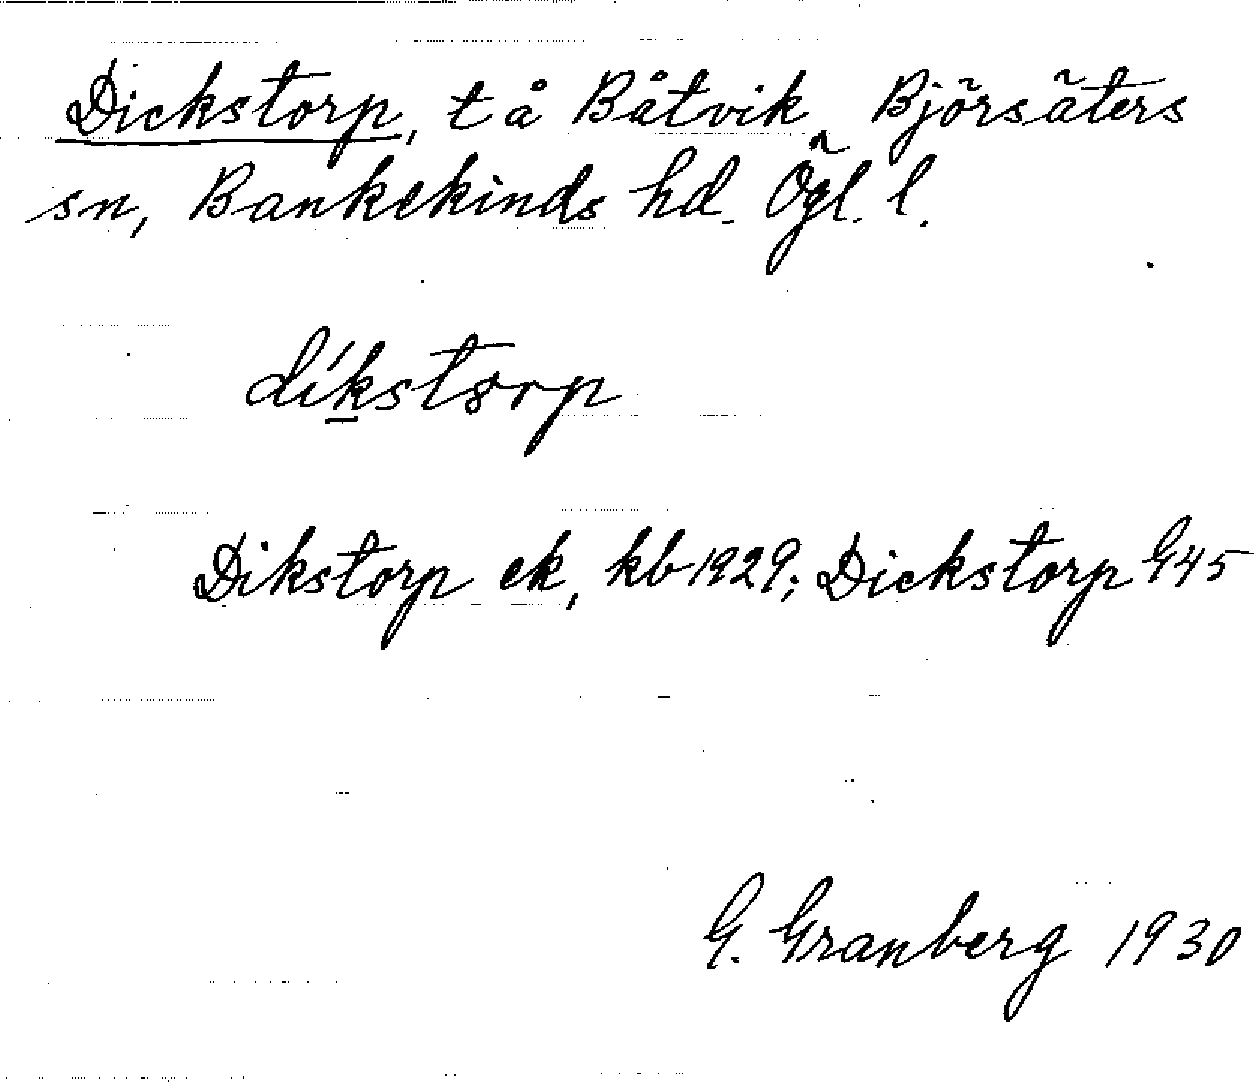 Dickstorp, t å Båtvik, Björsäters
sn, Bankekinds hd. Ögl. l.
díkstorp
Dikstorp ek, kb 1929; Dickstorp G45
G. Granberg 1930